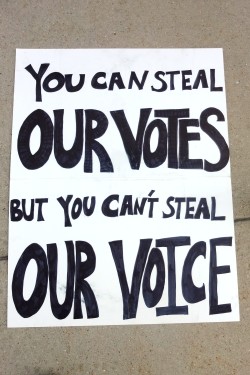 YOU CAN STEAL
OUR VOTES
BUT YOU CAN'T STEAL
OUR VOICE